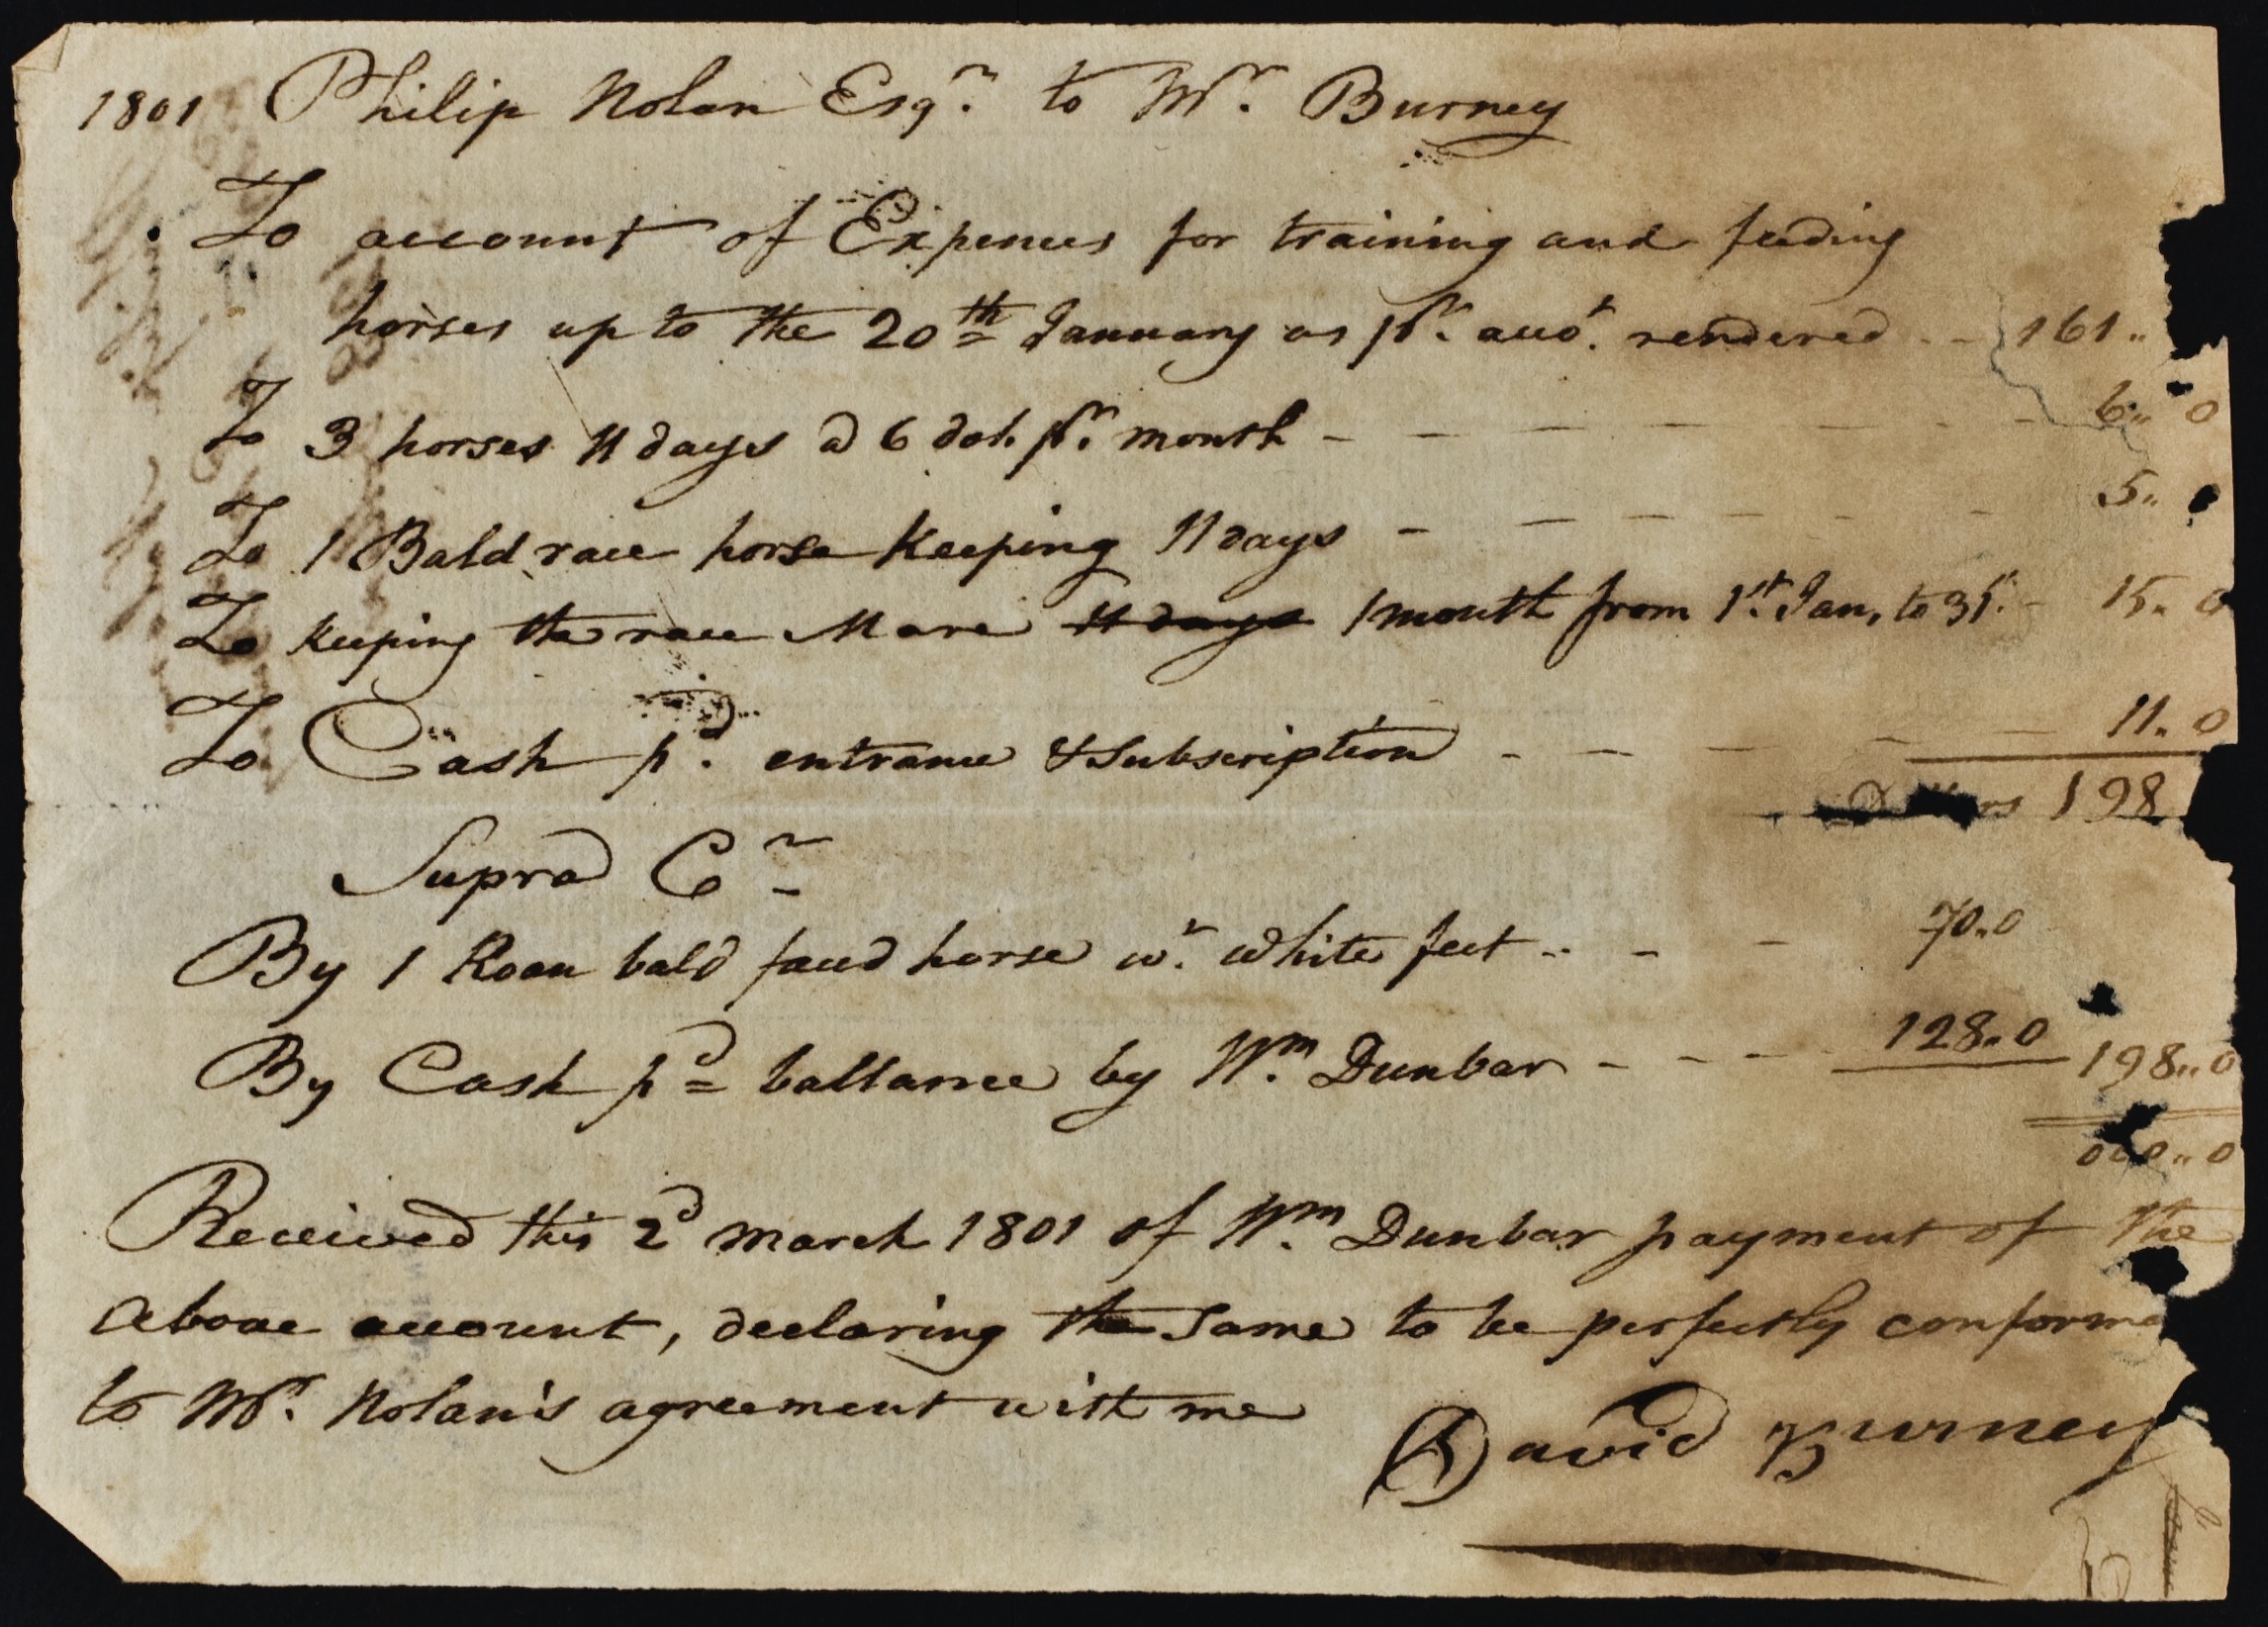 1801 Philip Nolan Esqr. to Mr. Burney
To account of Expences for training and feeding
horses up to the 20th January as pr. acco't. rendered - - 161..
To 3 horses 11 days @ 6 dol. pr. month - - - - - - - 6.. 0
To 1 Bald race horse keeping 11 days - - - - - - 5..
To keeping the race Mare 11 days 1 month from 1st. Jan, to 31. - 15.. 0
To Cash pd. entrance & Subscription - - - - - 11.. 0
Dollars 198
Supra Cr
By 1 Roan bald faced horse wt. white feet .. - - 70..0
By Cash pd ballance by Wm. Dunbar - - - - 128..0 198..0
000..0
Received this 2d March 1801 of Wm. Dunbar payment of the
above account, declaring the same to be perfectly conforma
to Mr. Nolan's agreement with me
David Burney